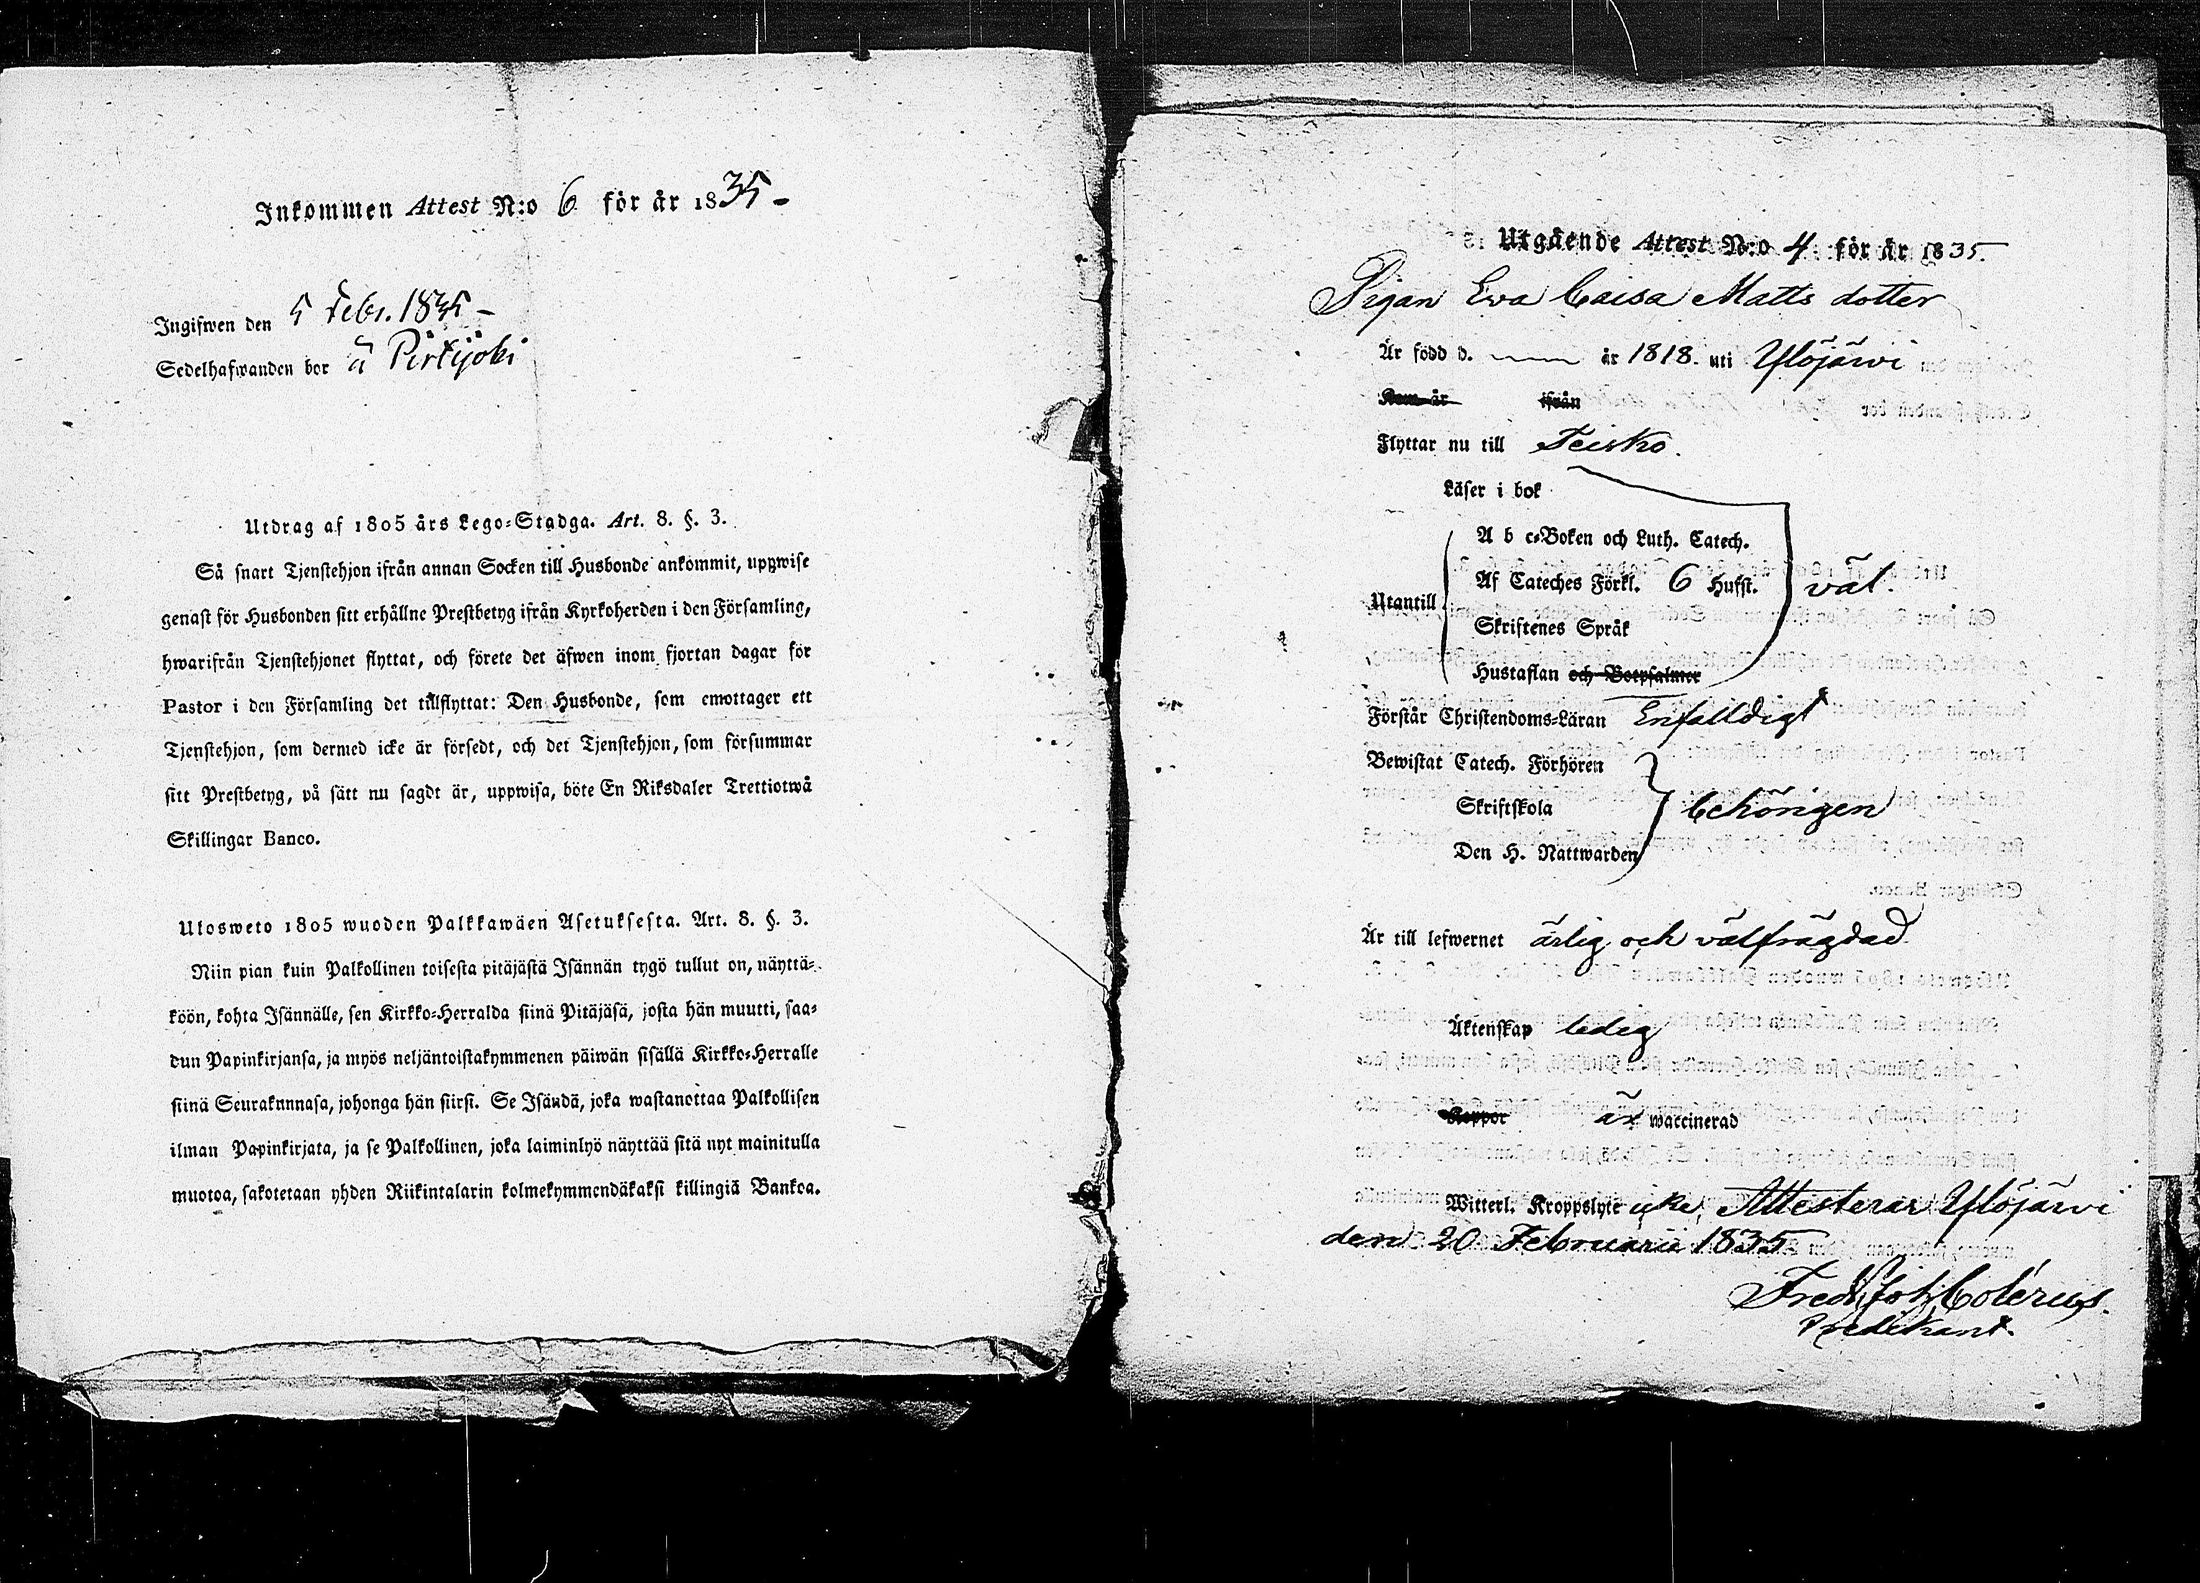 Inkommen Attest N:o 6 för år 1835 -
Ingifwen den 5 Febr. 1835 -
Sedelhafwanden bor å Pirttijoki
Utdrag af 1805 års Lego-Stadga. Art. 8. §. 3.
Så snart Tjenstehjon ifrån annan Socken till Husbonde ankommit, uppwise
genast för Husbonden sitt erhållne Prestbetyg ifrån Kyrkoherden i den Församling,
hwarifrån Tjenstehjonet flyttat, och förete det äfwen inom fjortan dagar för
Pastor i den Församling det tillflyttat: Den Husbonde, som emottager ett
Tjenstehjon, som dermed icke är försedt, och det Tjenstehjon, som försummar
sitt Prestbetyg, på sätt nu sagdt är, uppwisa, böte En Riksdaler Trettiotwå
Skillingar Banco.
Ulosweto 1805 wuoden Palkkawäen Asetuksesta. Art. 8. §. 3.
Niin pian kuin Palkollinen toisesta pitäjästä Isännän tygö tullut on, näyttä-
köön, kohta Isännälle, sen Kirkko-Herralda siinä Pitäjäsä, josta hän muutti, saa-
dun Papinkirjansa, ja myös neljäntoistakymmenen päiwän sisällä Kirkko-Herralle
siinä Seurakunnasa, johonga hän siirsi. Se Isäudä, joka wastanottaa Palkollisen
ilman Papinkirjata, ja se Palkollinen, joka laiminlyö näyttää sitä nyt mainitulla
muotoa, sakotetaan yhden Riikintalarin kolmekymmendäkaksi killingiä Bankoa.
Utgående Attest N:o 4 för år 1835.
Pigan Ewa Caisa Matts dotter
Är född d. år 1818. uti Ylöjärwi
Kom år ifrån
Flyttar nu till Teisko.
Läser i bok
A b c-Boken och Luth. Catech.
Utantill Af Cateches Förkl. 6 Hufst. väl.
Skriftenes Språk
Hustaflan och Botpsalmer
Förstår Christendoms-Läran Enfalldigt
Bewistat Catech. Förhören
Skriftskola behörigen
Den H. Nattwarden
Är till lefwernet ärlig och välfrägdad
Äktenskap ledig
Koppor är waccinerad
Witterl. Kroppslyte icke, Attesterar Ylöjärwi
den 20 Februarii 1835
Fredr. Joh. Colérus.
Predikant.